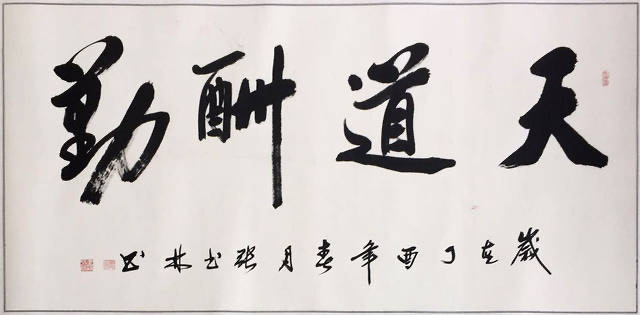 天道酬勤
歲在丁酉年春月張玉林书